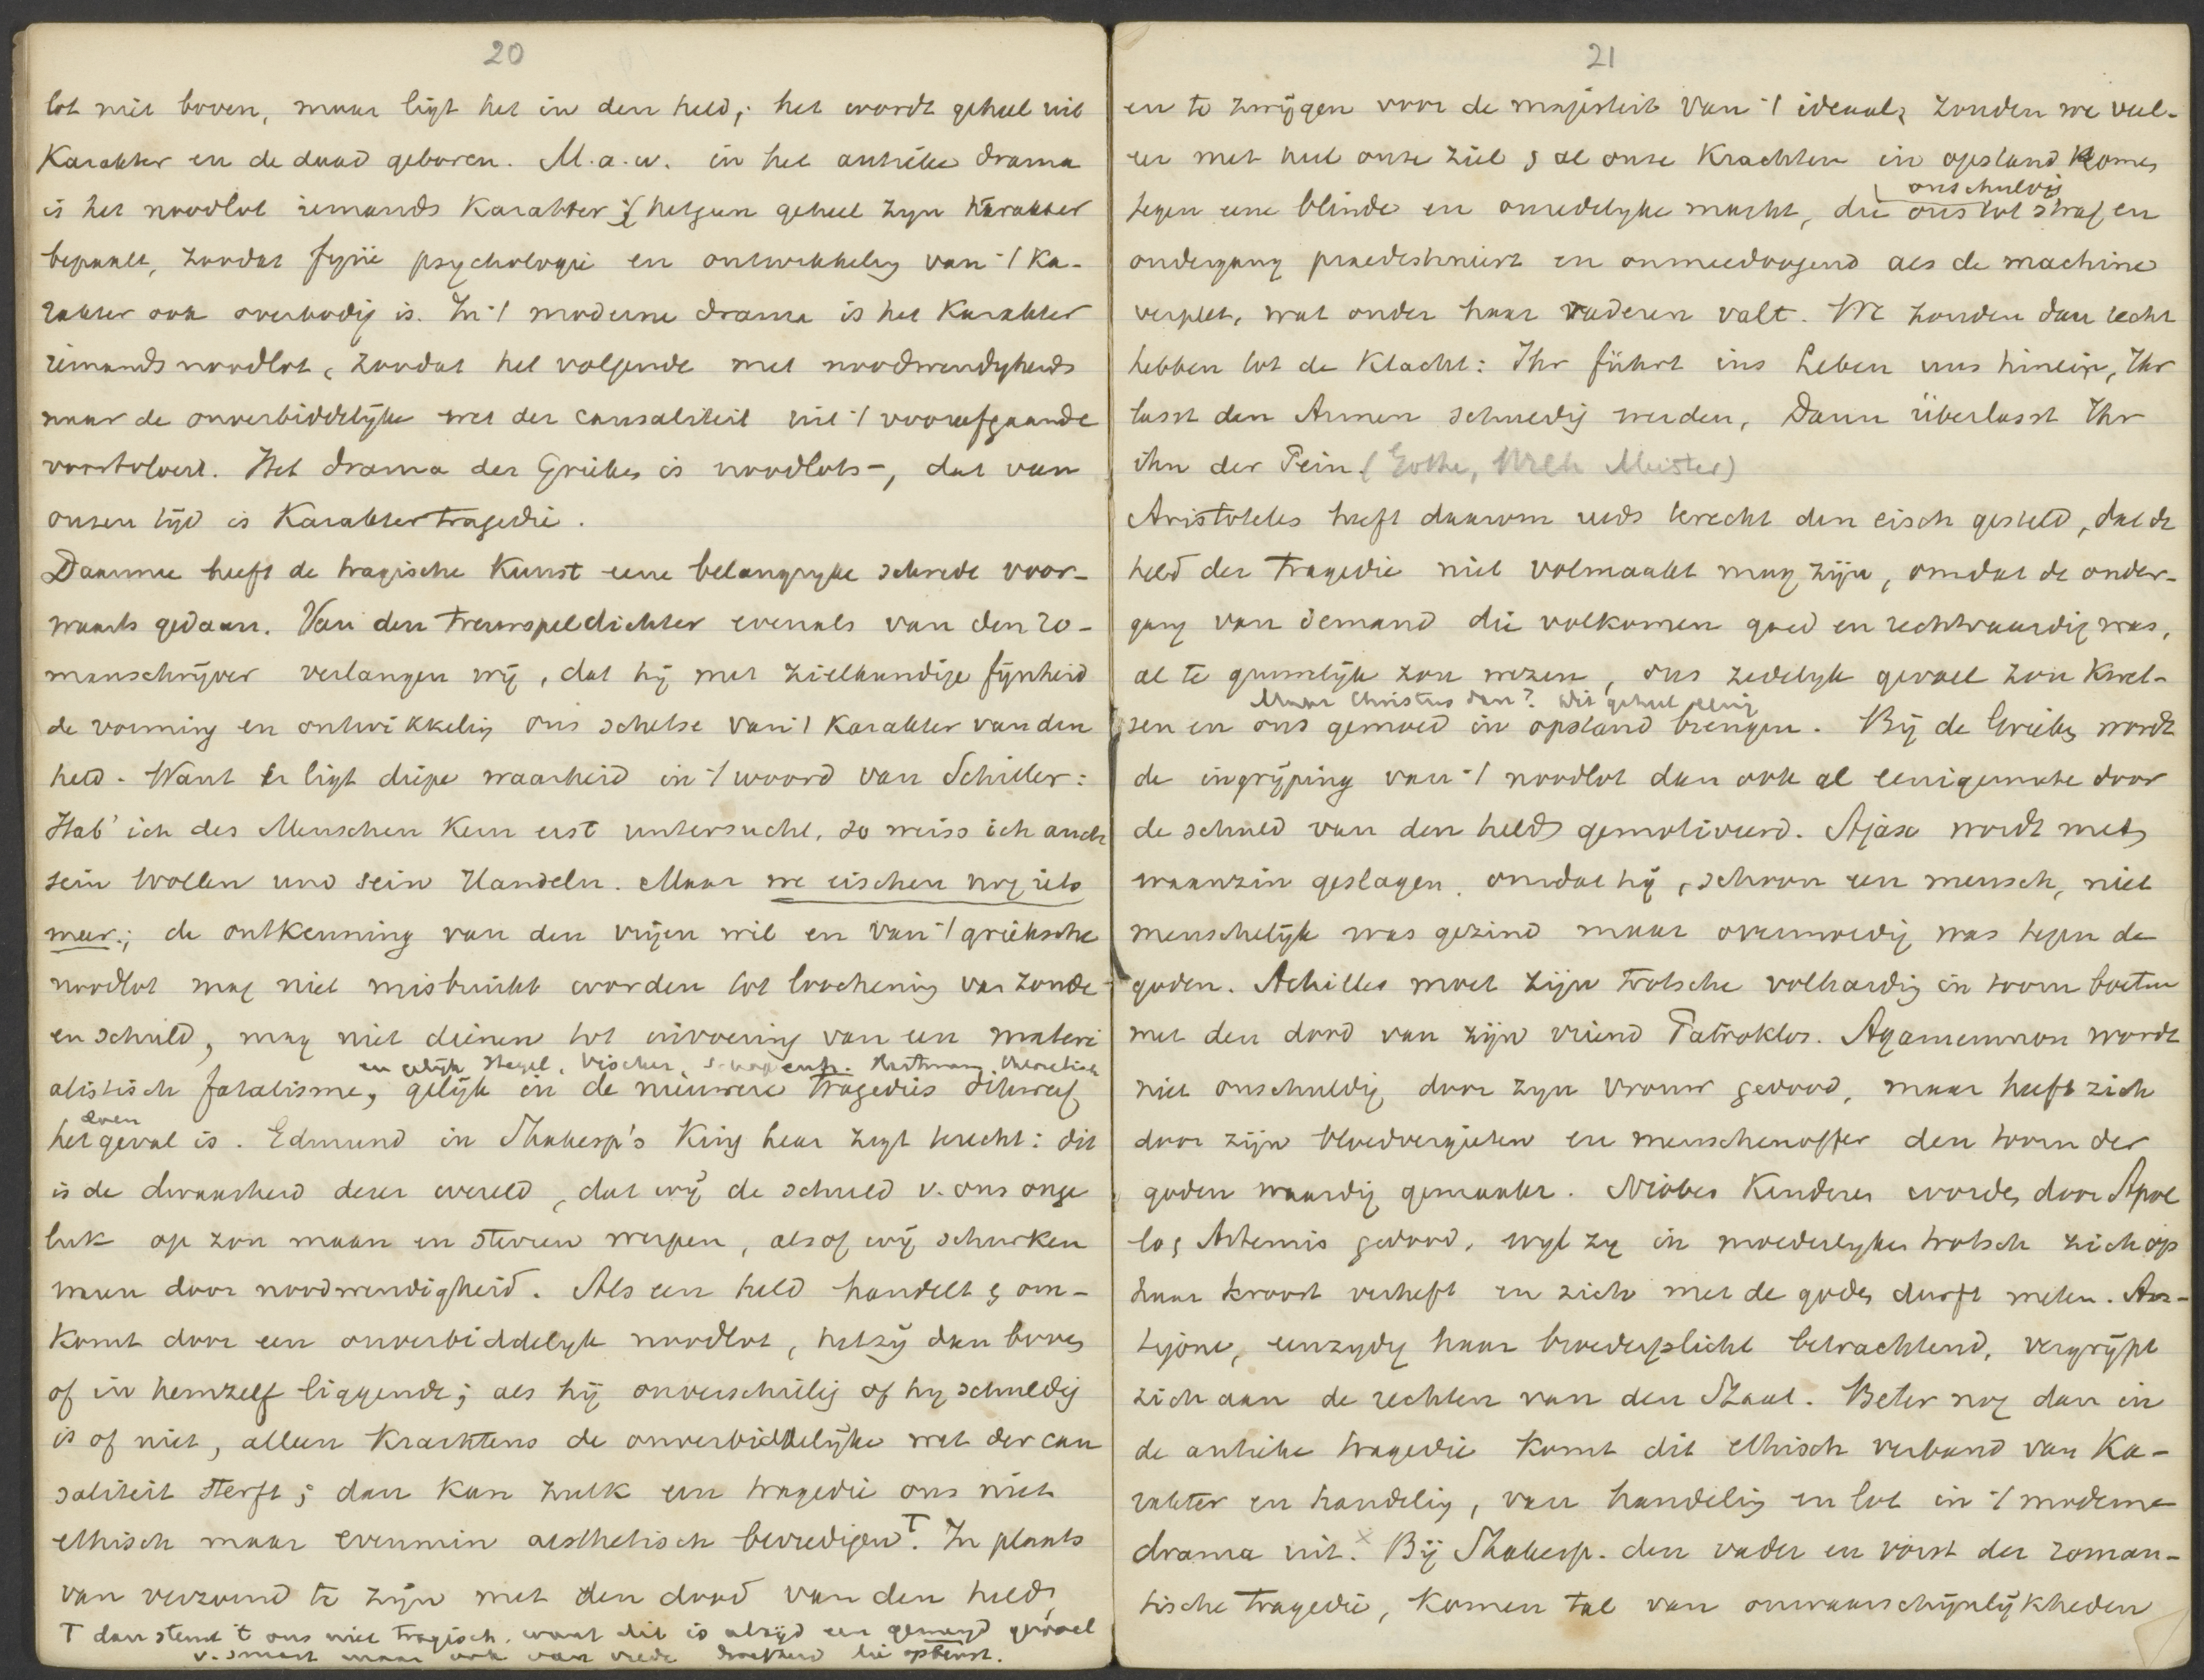 20
lot niet boven, maar ligt het in den held; het wordt geheel uit
Karakter en de daad geboren. M.a.w. in het antieke drama
is het noodlot iemands Karakter, hetgeen geheel zijn Karakter
bepaalt, zoodat fijne psychologie en ontwikkeling van 't Ka-
rakter ook overbodig is. In 't moderne drama is het Karakter
iemands noodlot, zoodat het volgende met noodwendigheid
naar de onverbiddelijke wet der causaliteit uit 't voorafgaande
voortvloeit. Het drama der Grieken is noodlots-, dat van
onzen tijd is Karaktertragedie.
Daarmee heeft de tragische Kunst eene belangrijke schrede voor-
waarts gedaan. Van den treurspeldichter evenals van den ro-
manschrijver verlangen wij, dat hij met zielkundige fijnheid
de vorming en ontwikkeling ons schetse van 't Karakter van den
held. Want er ligt diepe waarheid in 't woord van Schiller:
Hab' ich des Menschen Kern erst untersucht, so weiss ich auch
sein Wollen und sein Handeln. Maar we eischen nog iets
meer; de ontkenning van den vrijen wil en van 't grieksche
noodlot mag niet misbruikt worden tot loochening van zonde
en schuld, mag niet dienen tot invoering van een materi
en gelijk Hegel, Vischer, Hartmann, theoretisch
alistisch fatalisme, gelijk in de nieuwere tragedies dikwerf
het geval is. Edmund in Shakesp's King Lear zegt terecht: dit
is de dwaasheid dezer wereld, dat wij de schuld v. ons onge
luk op zon maan en sterren werpen, alsof wij schurken
waren door noodwendigheid. Als een held handelt & om-
komt door een onverbiddelijk noodlot, hetzij dan boven
of in hemzelf liggende; als hij onverschillig of hij schuldig
is of niet, alleen Krachtens de onverbiddelijke wet der cau
saliteit sterft; dan kan zulk een tragedie ons niet
ethisch maar evenmin aesthetisch bevredigen T. In plaats
van verzoend te zijn met den dood van den held,
T dan stemt 't ons niet tragisch, want dit is altijd een gemengd gevoel
v. smart maar ook van vrede die opbeurt.
21
en te zwijgen voor de majesteit van 't ideaal, zouden we veel-
eer met heel onze ziel & al onze Krachten in opstand komen
onschuldig
tegen eene blinde en onredelijke macht, die ons tot straf en
ondergang praedestineert en onmeedoogend als de machine
verplet, wat onder haar raderen valt. We zouden dan recht
hebben tot de Klacht: Ihr führt ins Leben uns hinein, Ihr
lasst den Armen schuldig werden, Dann überlasst Ihr
ihn der Pein. (Göthe, Wilh Meister)
Aristoteles heeft daarom reeds terecht den eisch gesteld, dat de
held der tragedie niet volmaakt mag zijn, omdat de onder-
gang van iemand die volkomen goed en rechtvaardig was,
al te gruwelijk zou wezen, ons zedelijk gevoel zou Kwet-
Maar Christus dan? Die geheel eenig
sen en ons gemoed in opstand brengen. Bij de Grieken wordt
de ingrijping van 't noodlot dan ook al eenigermate door
de schuld van den held gemotiveerd. Ajax wordt met
waanzin geslagen, omdat hij, schoon een mensch, niet
menschelijk was gezind maar overmoedig was tegen de
goden. Achilles moet zijn trotsche volharding in toorn boeten
met den dood van zijn vriend Patroklos. Agamemnon wordt
niet onschuldig door zijn vrouw gedood, maar heeft zich
door zijn bloedvergieten en menschenoffer den toorn der
goden waardig gemaakt. Niobes Kinderen worden door Apol
lo & Artemis gedood, wijl zij in moederlijken trotsch zich op
haar kroost verheft en zich met de goden durft meten. An-
tigone, eenzijdig haar broederplicht betrachtend, vergrijpt
zich aan de rechten van den Staat. Beter nog dan in
de antieke tragedie komt dit ethisch verband van Ka-
rakter en handeling, van handeling en lot in 't moderne
drama uit. x Bij Shakesp. den vader en vorst der roman-
tische tragedie, komen tal van onwaarschijnlijkheden